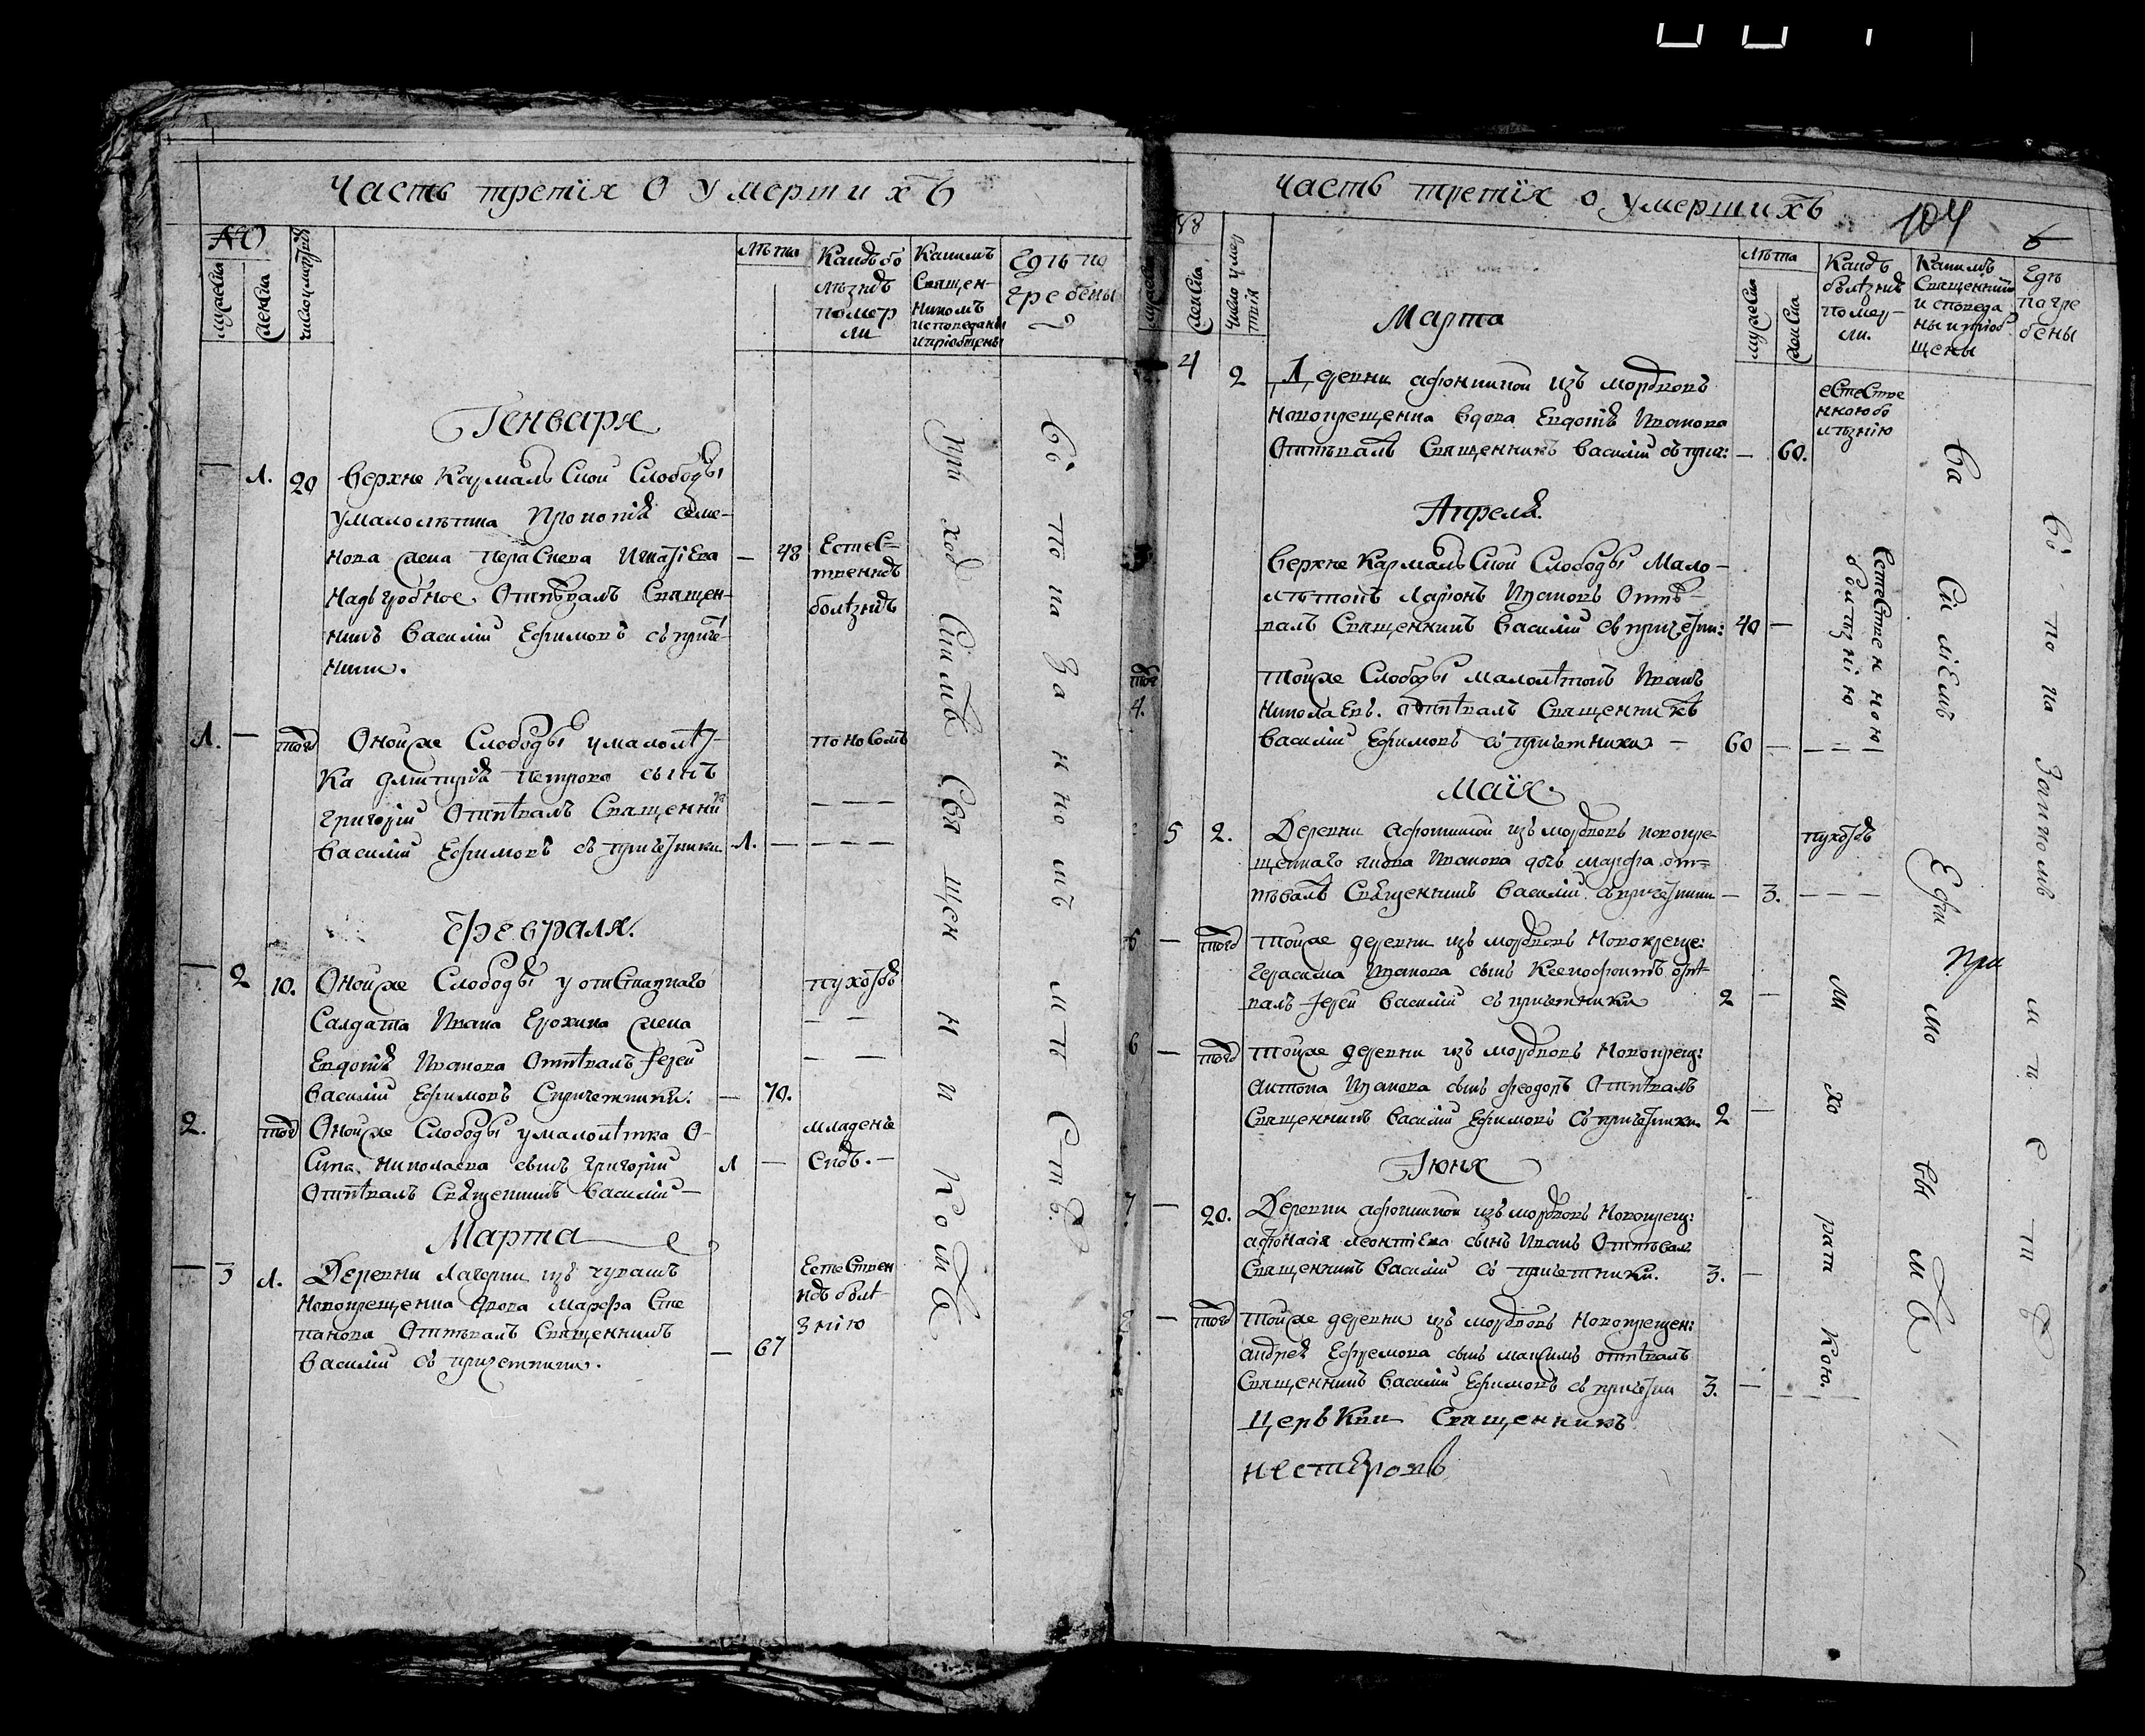 Часть третїя О умершихъ
№
мужеска
женска
число умертвія
Лѣта
Какою бо
лѣзнію
помер
ли
Какимъ
Священ-
никомъ
исповеданы
и пріобщены
Где по
гребены
Генваря
1. 20 Верхне Кармальской Слободы
умалолѣтка Прокопія семе-
нова жена Параскева Игнатіева
Надъгробное Отпѣвалъ Священ-
никъ Василій Ефимовъ съ приче-
ники.
— 48
Естес-
твенною
болѣзнію
1. — того Оной же Слободы умалолѣт-
ка Дмитрія Петрова сынъ
Григорій Отпѣвалъ Священни
Василій Ефимовъ съ причетники
1. —
поносомъ
Февраля.
— 2 10. Оной же Слободы у отставнаго
Салдата Ивана Ерохина жена
Евдокія Иванова Отпѣвалъ Іерей
Василій Ефимовъ Спричетники:
— 70.
2. того Оной же Слободы умалолѣтка О-
сипа Николаева сынъ григорій
Отпѣвалъ Священникъ Василій —
1 —
младенче
Марта
— 3 1. Деревни из чувашъ
Новокрещенка вдова Марфа Сте
панова Отпѣвалъ Священникъ
Василій съ причетники.
— 67
Естествен
ною болѣ-
знію
При ход Ски мъ Свя щен н и комъ
Во по ка за нно мъ мѣ стѣ.
часть третїя о умершихъ
104
6
мужеска
женска
число умер
твія
Лѣта
мужеска
женска
Какою
болѣзнію
помер-
ли.
Какимъ
Священник
исповеда
ны и пріоб
щены
Где
погре
бены
Марта
4 2 Деревни афонкиной изъ мордвовъ
новокрещенка вдова Евдокія Иванова
Отпѣвалъ Священникъ Василій съ прич:
— 60.
естестве
нною бо
лѣзнію
Апреля.
Верхне Кармальской Слободы Мало-
лѣтокъ Ларіонъ Ивановъ Отпѣ-
валъ Священникъ Василій съ причетни:
40 —
того
4.
Той же Слободы малолѣтокъ Иванъ
Николаевъ. отпѣвалъ Священникъ
Василій Ефимовъ съ причетники —
60 —
Естествен ною
болѣзнію
Маїя.
5 2. Деревни Афонкиной изъ мордвовъ новокре-
щеннаго Ивана дочь марфа от=
пѣвалъ Священникъ Василій съ причетники
— 3.
5 — того той же деревни изъ мордвовъ Новокреще:
Герасима Иванова сынъ Ксенофонтъ отпѣ-
валъ Іерей Василій съ причетники
2 —
6 — того той же деревни изъ мордвовъ Новокрещ:
Антона Иванова сынъ Феодоръ Отпѣвалъ
Священникъ Василій Ефимовъ Съ причетники.
2 —
Іюня
7 — 20. Деревни афонкиной изъ мордвовъ Новокрещ:
афонасія леонтіева сынъ Иванъ Отпѣвалъ
Священникъ Василій Съ причетники.
3. —
— того той же деревни изъ мордвовъ Новокрещен:
андрея Ефремова сынъ максимъ отпѣвалъ
Священникъ Василій Ефимовъ съ причетни
3. —
ли хо рат кою.
Ва си ліемъ Ефи мо вы мъ
При
Во по ка занномъ м ѣ с т ѣ
Церькви Священникъ
нестеровъ